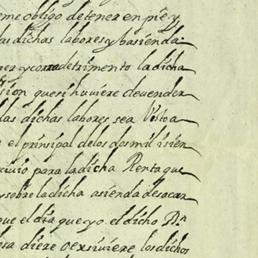 me obligo detener en pie y
las dichas labores y hasienda
detrimento la dicha
sion que si huviere de vender
las dichas labores sea Visto a
el principal de los dos mil i sien
para la dicha Renta que
y sobre la dicha asienda de sacar
que el dia que yo el dicho Dn
diere o exsiviere los dichos